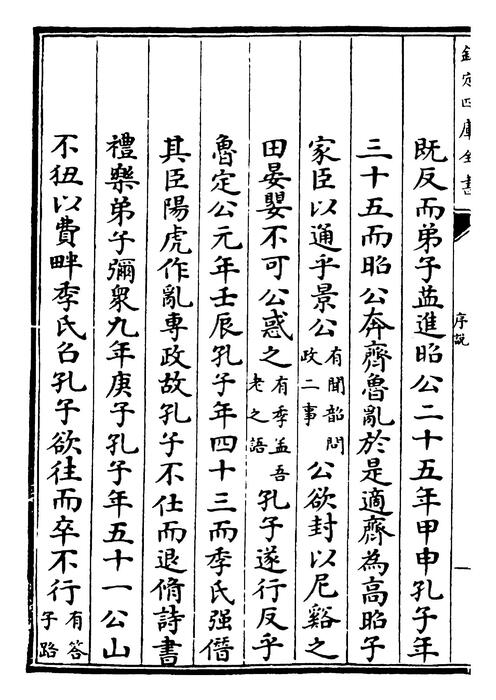 欽定四庫全書
序說
一
既反而弟子益進昭公二十五年甲申孔子年
三十五而昭公奔齊魯亂於是適齊為高昭子
家臣以通乎景公有聞韶問政二事公欲封以尼谿之
田晏嬰不可公惑之有季孟吾老之語孔子遂行反乎
魯定公元年壬辰孔子年四十三而季氏強僭
其臣陽虎作亂專政故孔子不仕而退脩詩書
禮樂弟子彌衆九年庚子孔子年五十一公山
不狃以費畔季氏召孔子欲往而卒不行有答子路